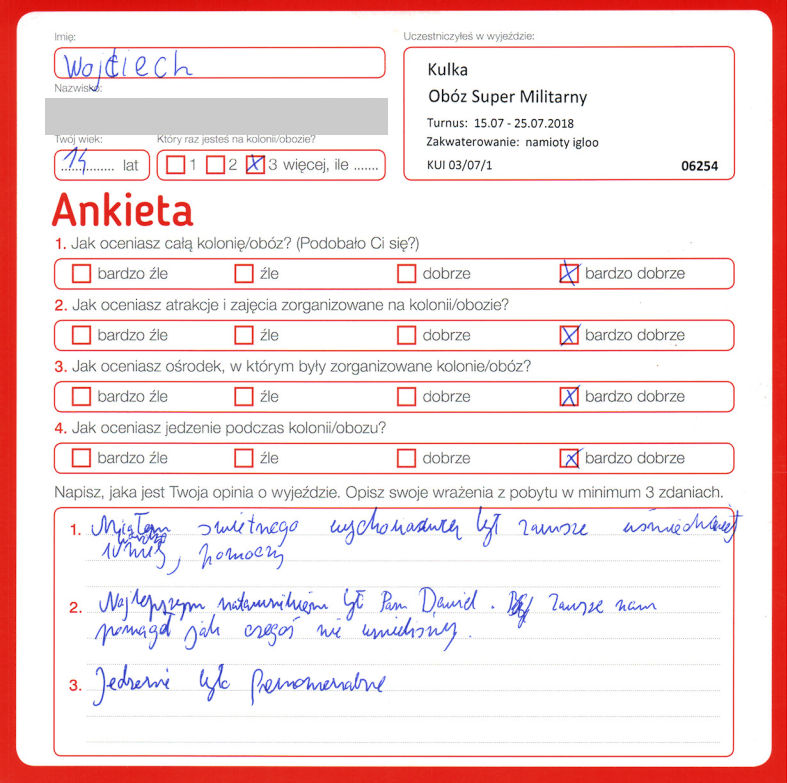 Imię:
Wojciech
Nazwisko:
Twój wiek:
14 lat
Który raz jesteś na kolonii/obozie?
1 2 3 więcej, ile .......
Uczestniczyłeś w wyjeździe:
Kulka
Obóz Super Militarny
Turnus: 15.07 - 25.07.2018
Zakwaterowanie: namioty igloo
KUI 03/07/1 06254
Ankieta
1. Jak oceniasz całą kolonię/obóz? (Podobało Ci się?)
bardzo źle źle dobrze bardzo dobrze
2. Jak oceniasz atrakcje i zajęcia zorganizowane na kolonii/obozie?
bardzo źle źle dobrze bardzo dobrze
3. Jak oceniasz ośrodek, w którym były zorganizowane kolonie/obóz?
bardzo źle źle dobrze bardzo dobrze
4. Jak oceniasz jedzenie podczas kolonii/obozu?
bardzo źle źle dobrze bardzo dobrze
Napisz, jaka jest Twoja opinia o wyjeździe. Opisz swoje wrażenia z pobytu w minimum 3 zdaniach.
1. Miałem swietnego wychowawcę był zawsze
bardzo
, pomocny
2. Najlepszym był Pan Dawid. Zawsze nam
pomagał jak czegoś nie
3. Jedzenie było